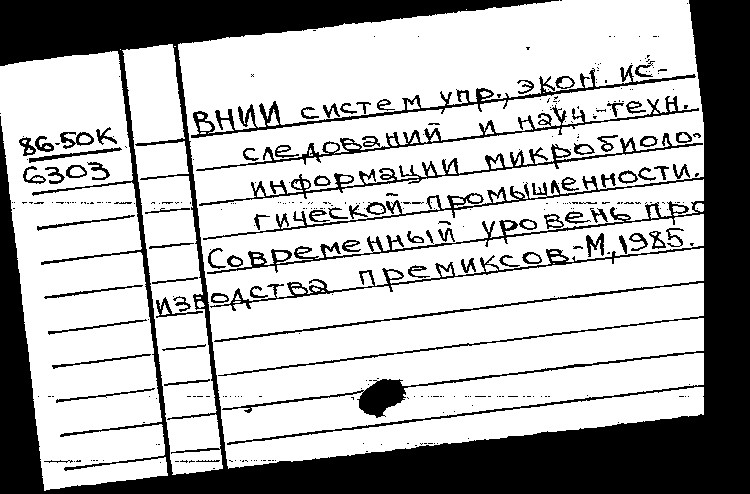 86-50К
6303
ВНИИ систем упр., экон. ис-
следований и науч.-техн.
информации микробиоло-
гической промышленности.
Современный уровень про
изводства премиксов.-М, 1985.